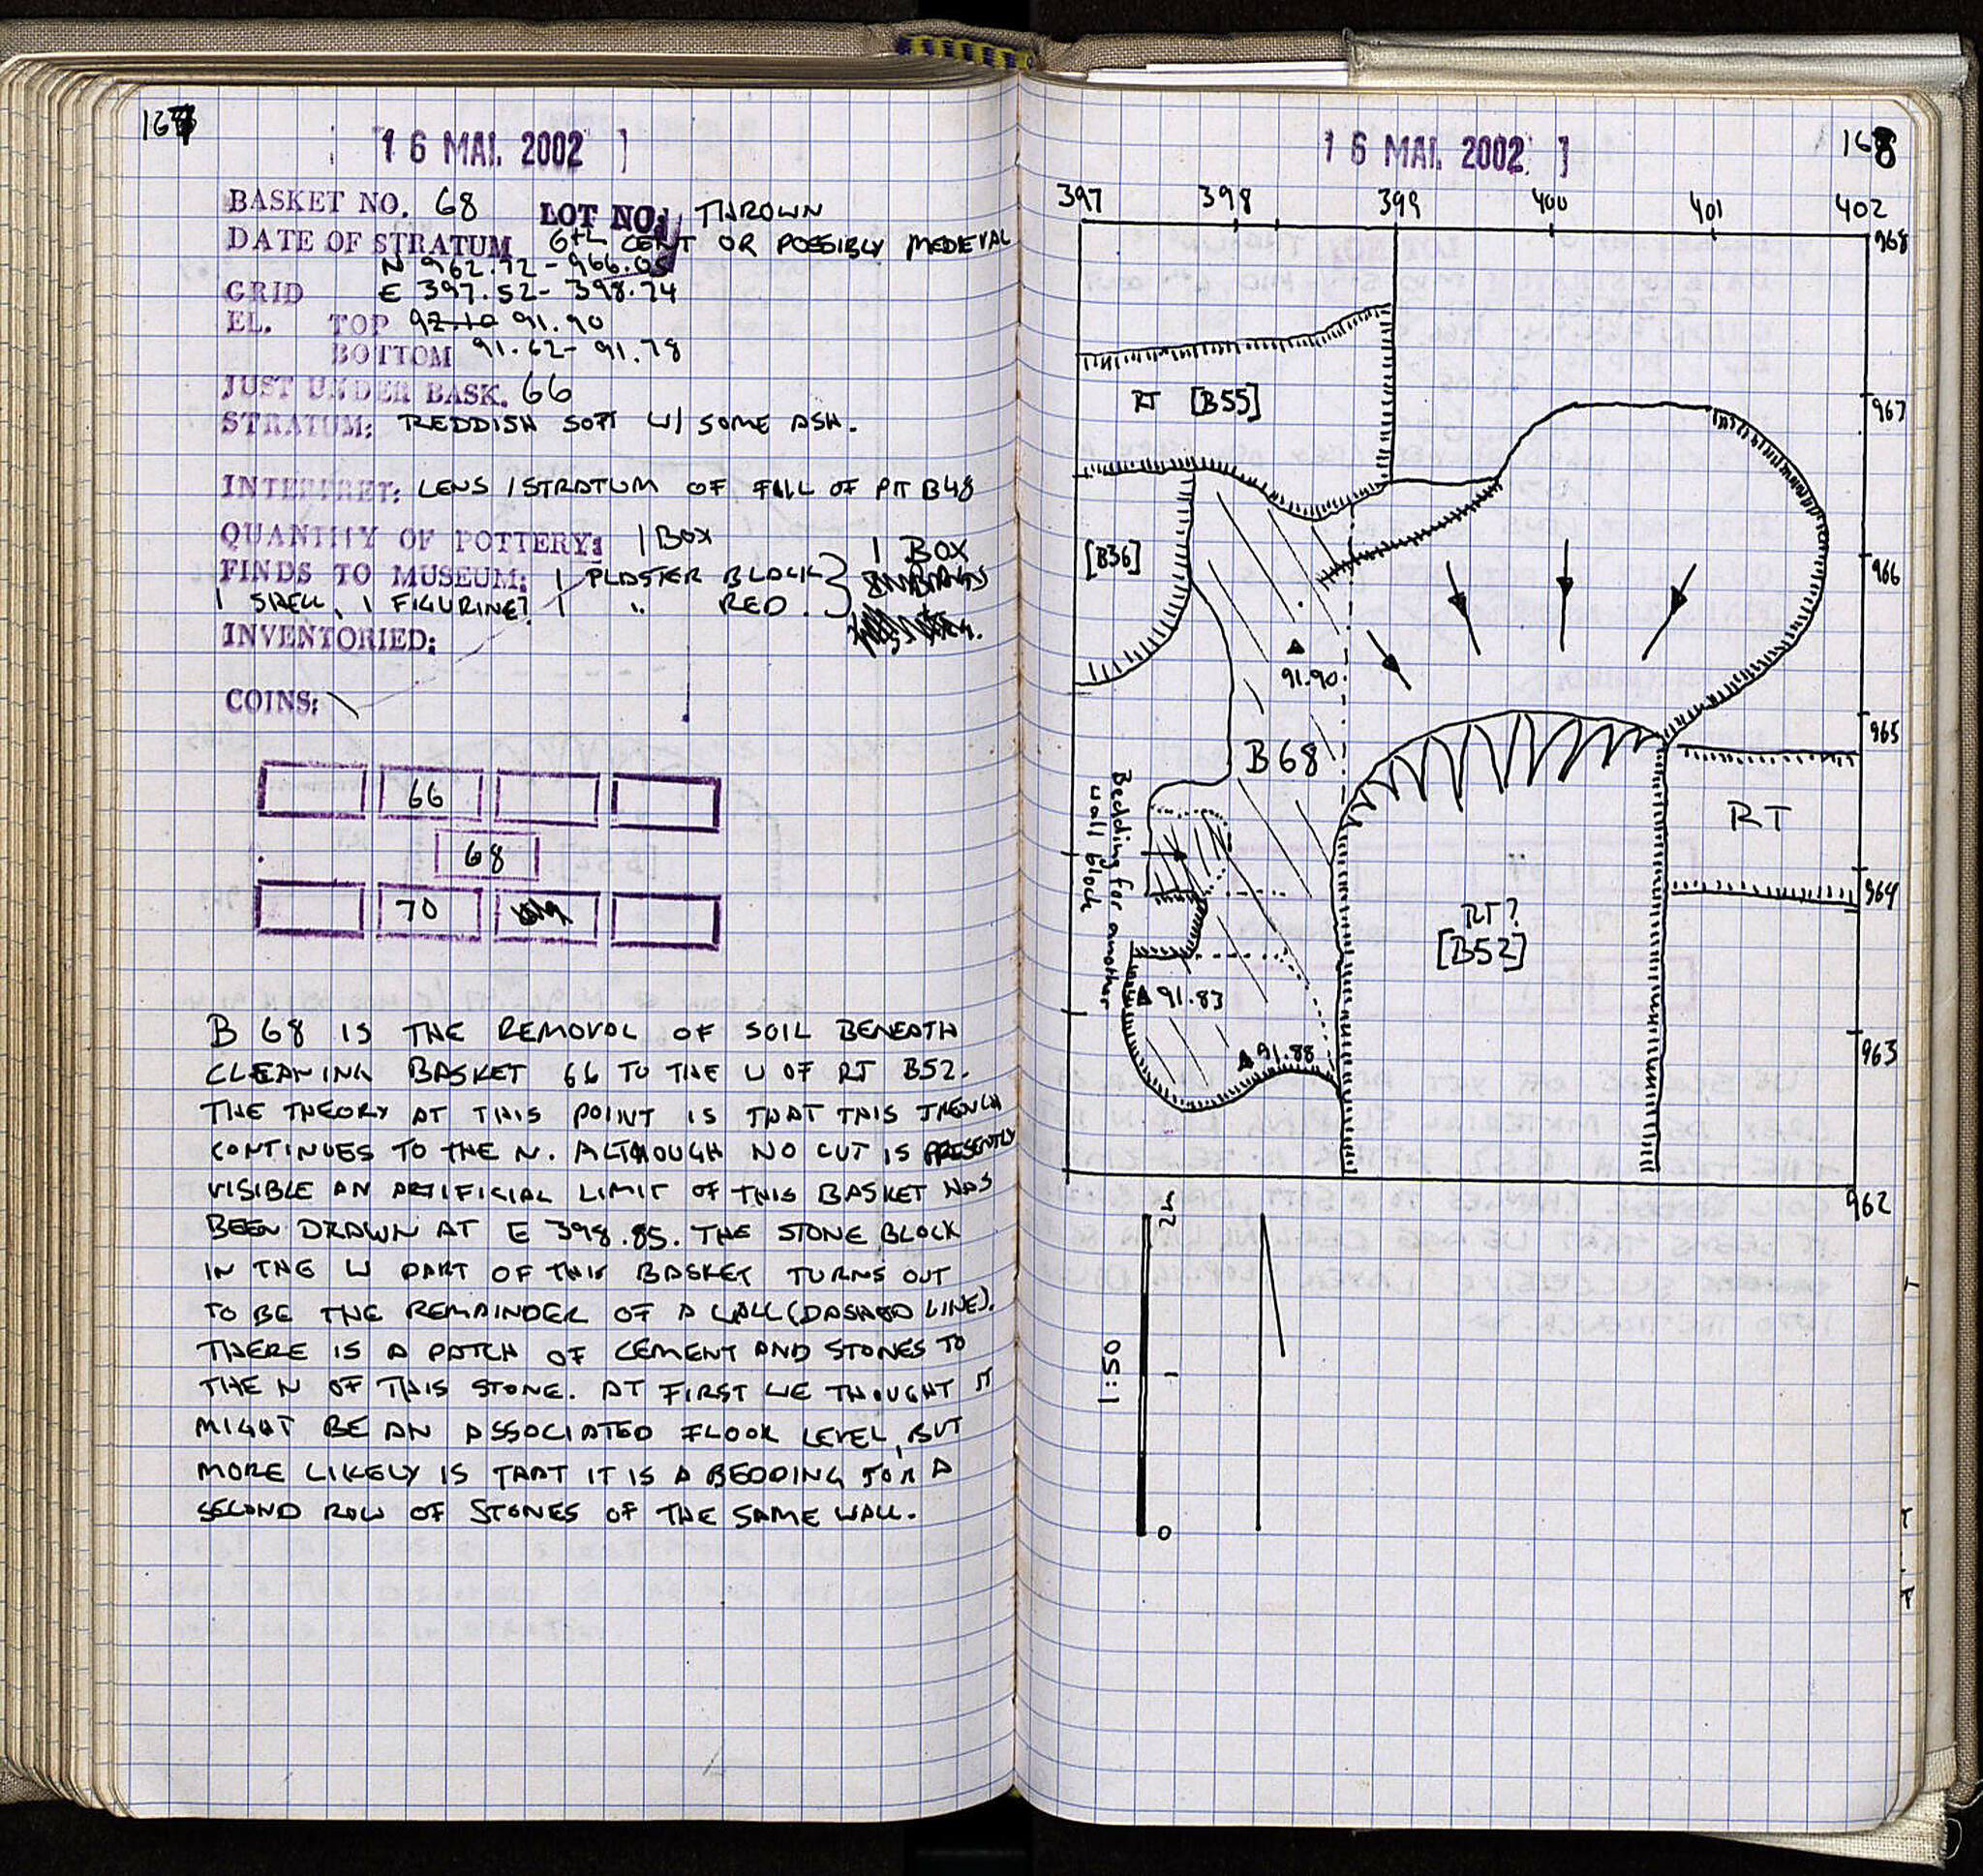 167
16 MAI. 2002
BASKET NO. 68 LOT NO. THROWN
DATE OF STRATUM 6th CENT OR POSSIBLY MEDIEVAL
N 962.72 - 966.05
GRID E 397.52 - 398.74
EL. TOP 92.10 91.90
BOTTOM 91.62 - 91.78
JUST UNDER BASK. 66
STRATUM: REDDISH SOFT W/ SOME ASH.
INTERPRET: LENS / STRATUM OF FILL OF PIT B48
QUANTITY OF POTTERY: 1 BOX
FINDS TO MUSEUM: 1 PLASTER BLACK } 1 BOX
1 SHELL, 1 FIGURINE? 1 " RED.
INVENTORIED:
COINS: \
66
68
70
B 68 IS THE REMOVAL OF SOIL BENEATH
CLEANING BASKET 66 TO THE W OF RT B52.
THE THEORY AT THIS POINT IS THAT THIS TRENCH
CONTINUES TO THE N. ALTHOUGH NO CUT IS PRESENTLY
VISIBLE AN ARTIFICIAL LIMIT OF THIS BASKET HAS
BEEN DRAWN AT E 398.85. THE STONE BLOCK
IN THE W PART OF THIS BASKET TURNS OUT
TO BE THE REMAINDER OF A WALL (DASHED LINE).
THERE IS A PATCH OF CEMENT AND STONES TO
THE N OF THIS STONE. AT FIRST WE THOUGHT IT
MIGHT BE AN ASSOCIATED FLOOR LEVEL, BUT
MORE LIKELY IS THAT IT IS A BEDDING FOR A
SECOND ROW OF STONES OF THE SAME WALL.
168
16 MAI. 2002
397 398 399 400 401 402
968
RT [B55]
967
[B36]
966
91.90
965
B 68
RT
Bedding for another
wall block
964
RT?
[B52]
91.83
91.88
963
962
2m
1:50
0